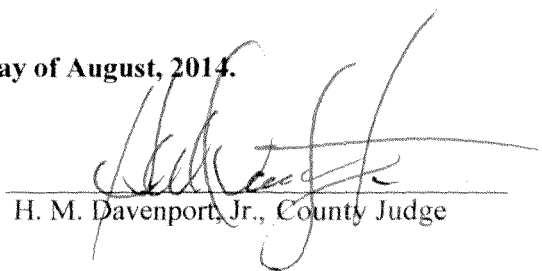 ay of August, 2014.
H. M. Davenport, Jr., County Judge